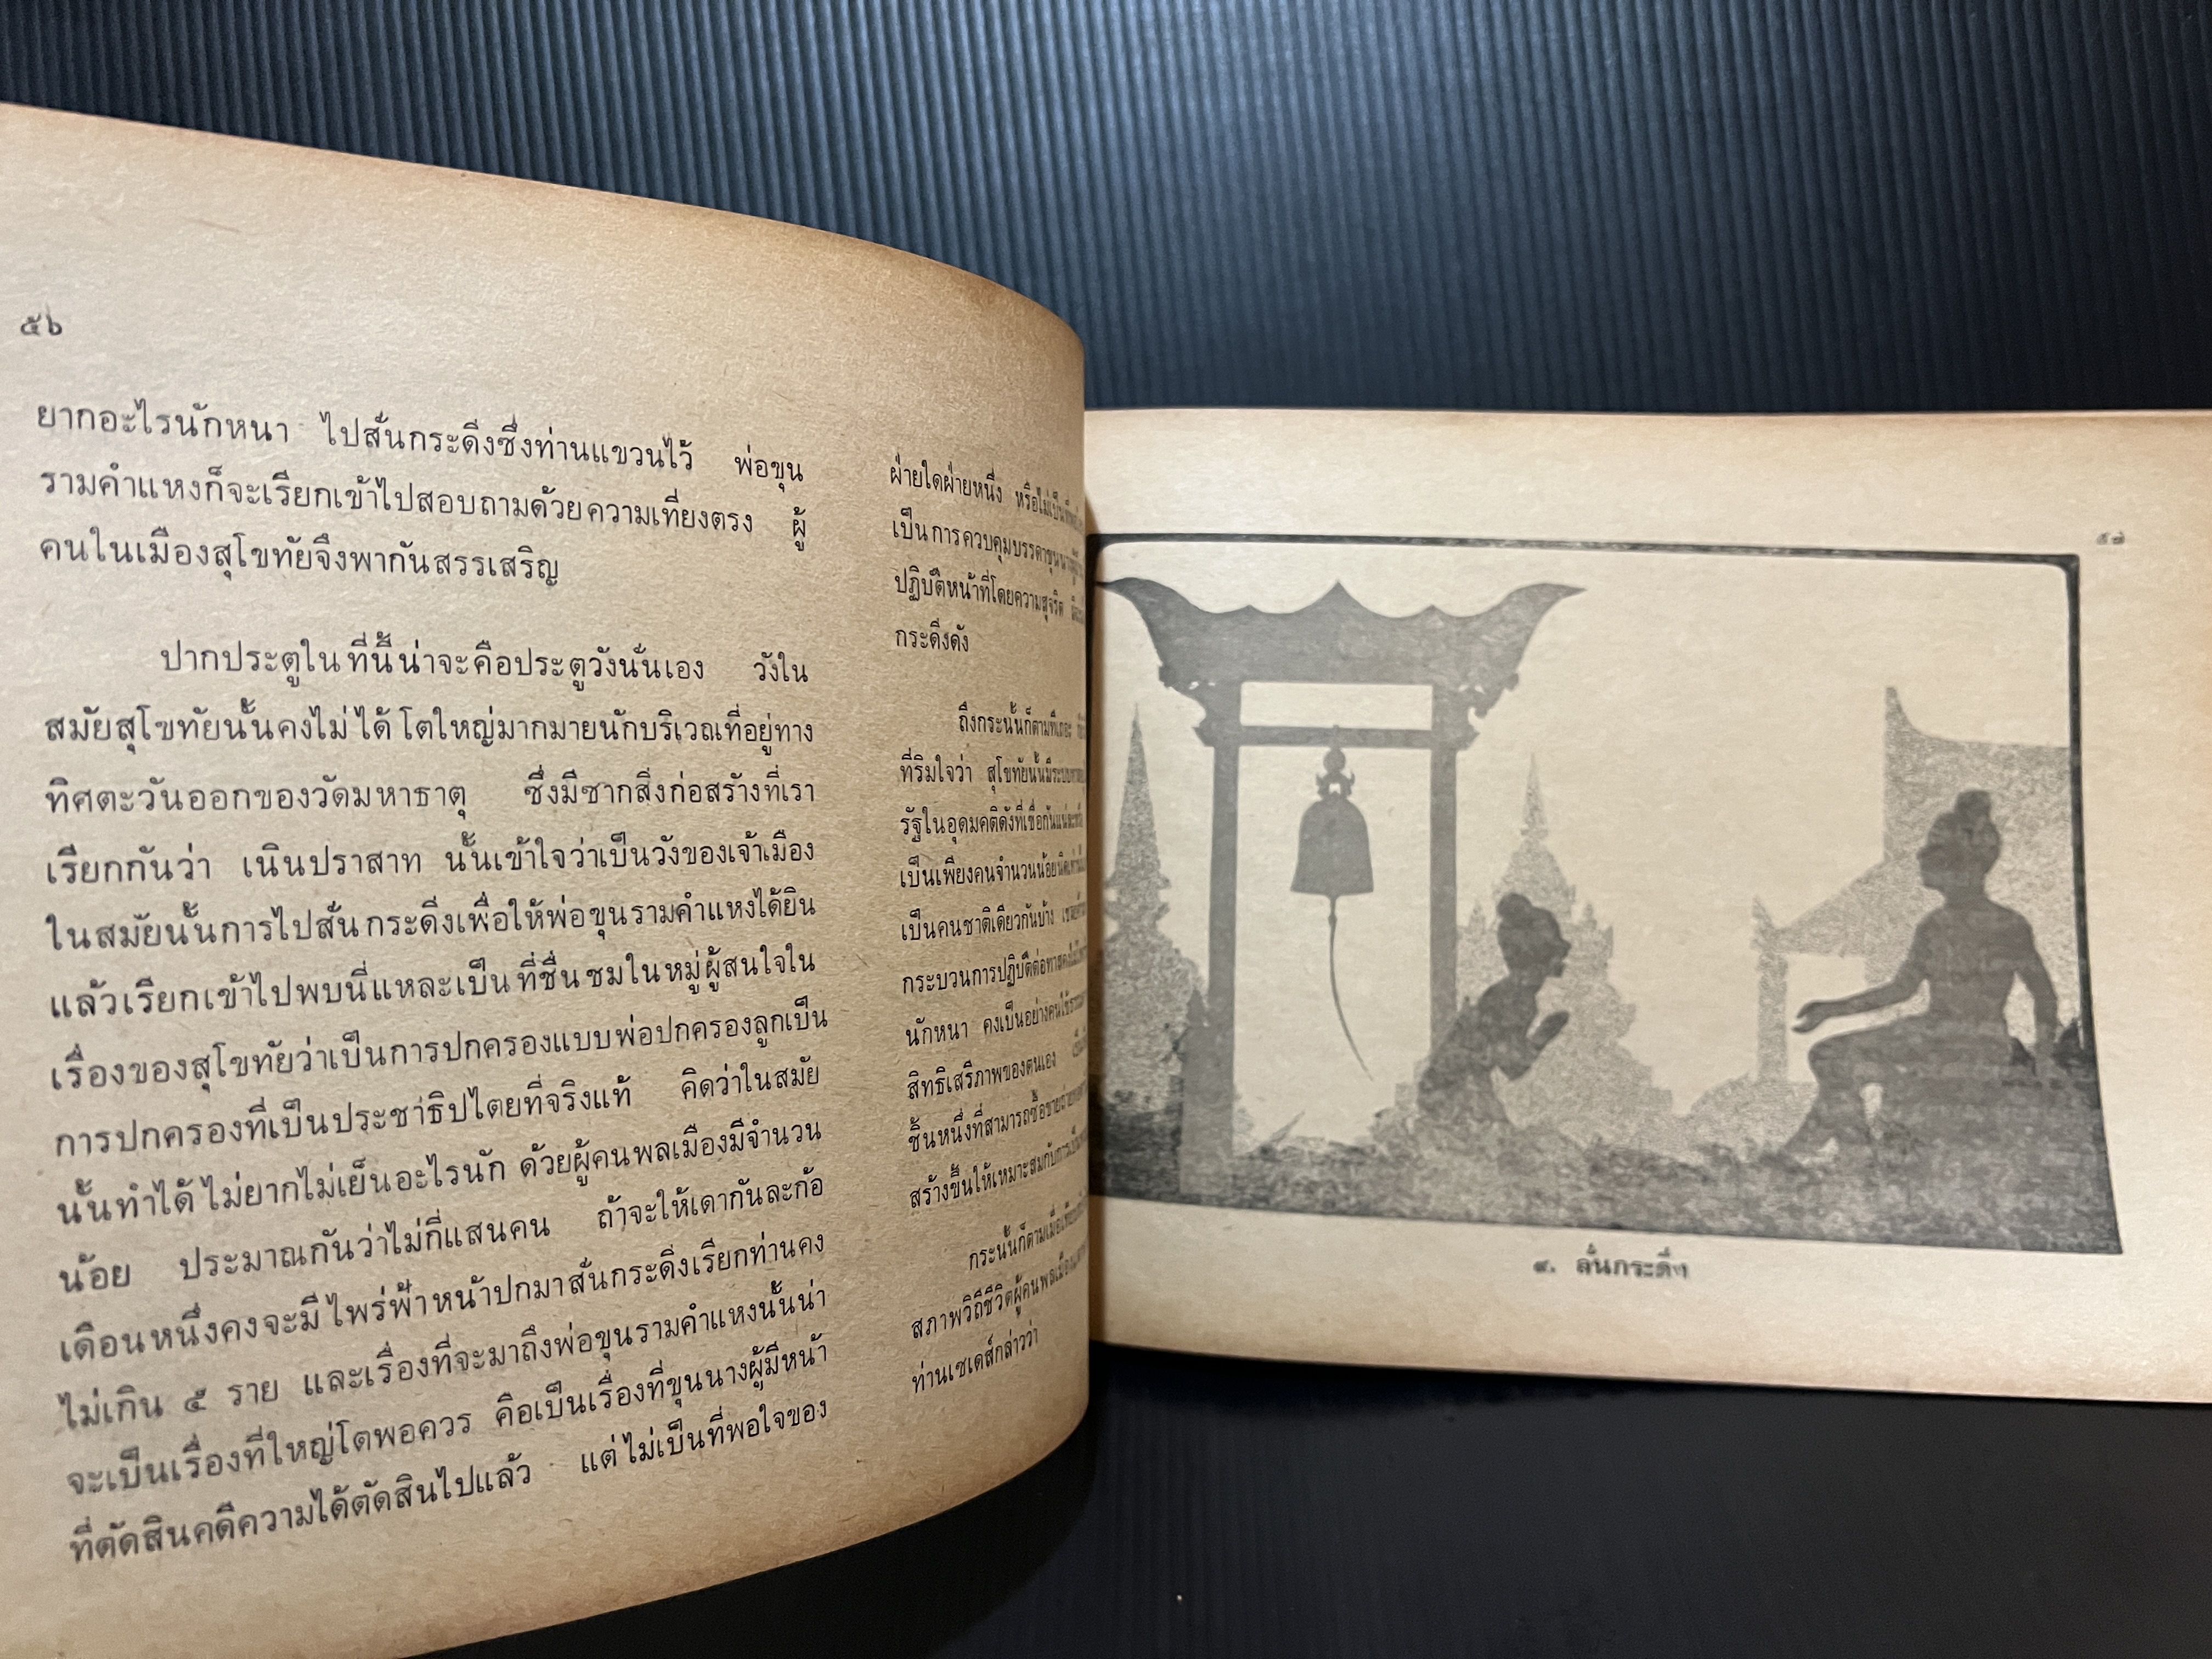 ๕๖
ยากอะไรนักหนา ไปสั่นกระดิ่งซึ่งท่านแขวนไว้ พ่อขุน
รามคำแหงก็จะเรียกเข้าไปสอบถามด้วยความเที่ยงตรง ผู้
คนในเมืองสุโขทัยจึงพากันสรรเสริญ
ปากประตูในที่นี้น่าจะคือประตูวังนั่นเอง วังใน
สมัยสุโขทัยนั้นคงไม่ได้โตใหญ่มากมายนักบริเวณที่อยู่ทาง
ทิศตะวันออกของวัดมหาธาตุ ซึ่งมีซากสิ่งก่อสร้างที่เรา
เรียกกันว่า เนินปราสาท นั้นเข้าใจว่าเป็นวังของเจ้าเมือง
ในสมัยนั้นการไปสั่นกระดิ่งเพื่อให้พ่อขุนรามคำแหงได้ยิน
แล้วเรียกเข้าไปพบนี่แหละเป็นที่ชื่นชมในหมู่ผู้สนใจใน
เรื่องของสุโขทัยว่าเป็นการปกครองแบบพ่อปกครองลูกเป็น
การปกครองที่เป็นประชาธิปไตยที่จริงแท้ คิดว่าในสมัย
นั้นทำได้ไม่ยากไม่เย็นอะไรนัก ด้วยผู้คนพลเมืองมีจำนวน
น้อย ประมาณกันว่าไม่กี่แสนคน ถ้าจะให้เดากันละก้อ
เดือนหนึ่งคงจะมีไพร่ฟ้าหน้าปกมาสั่นกระดิ่งเรียกท่านคง
ไม่เกิน ๕ ราย และเรื่องที่จะมาถึงพ่อขุนรามคำแหงนั้นน่า
จะเป็นเรื่องที่ใหญ่โตพอควร คือเป็นเรื่องที่ขุนนางผู้มีหน้า
ที่ตัดสินคดีความได้ตัดสินไปแล้ว แต่ไม่เป็นที่พอใจของ
ฝ่ายใดฝ่ายหนึ่ง หรือไม่เป็น
เป็นการควบคุมบรรดาขุนนาง
ปฏิบัติหน้าที่โดยความสุจริต
กระดิ่งดัง
ถึงกระนั้นก็ตามทีเถอะ
ที่ริมใจว่า สุโขทัยนั้นมีระบบ
รัฐในอุดมคติดังที่เชื่อกัน
เป็นเพียงคนจำนวนน้อยนิด
เป็นคนชาติเดียวกันบ้าง
กระบวนการปฏิบัติต่อทาส
นักหนา คงเป็นอย่างคน
สิทธิเสรีภาพของตนเอง
ชิ้นหนึ่งที่สามารถซื้อขาย
สร้างขึ้นให้เหมาะสมกับการ
กระนั้นก็ตามเมื่อ
สภาพวิถีชีวิตผู้คนพลเมือง
ท่านเซเดส์กล่าวว่า
๕๗
๙. ลั่นกระดิ่ง